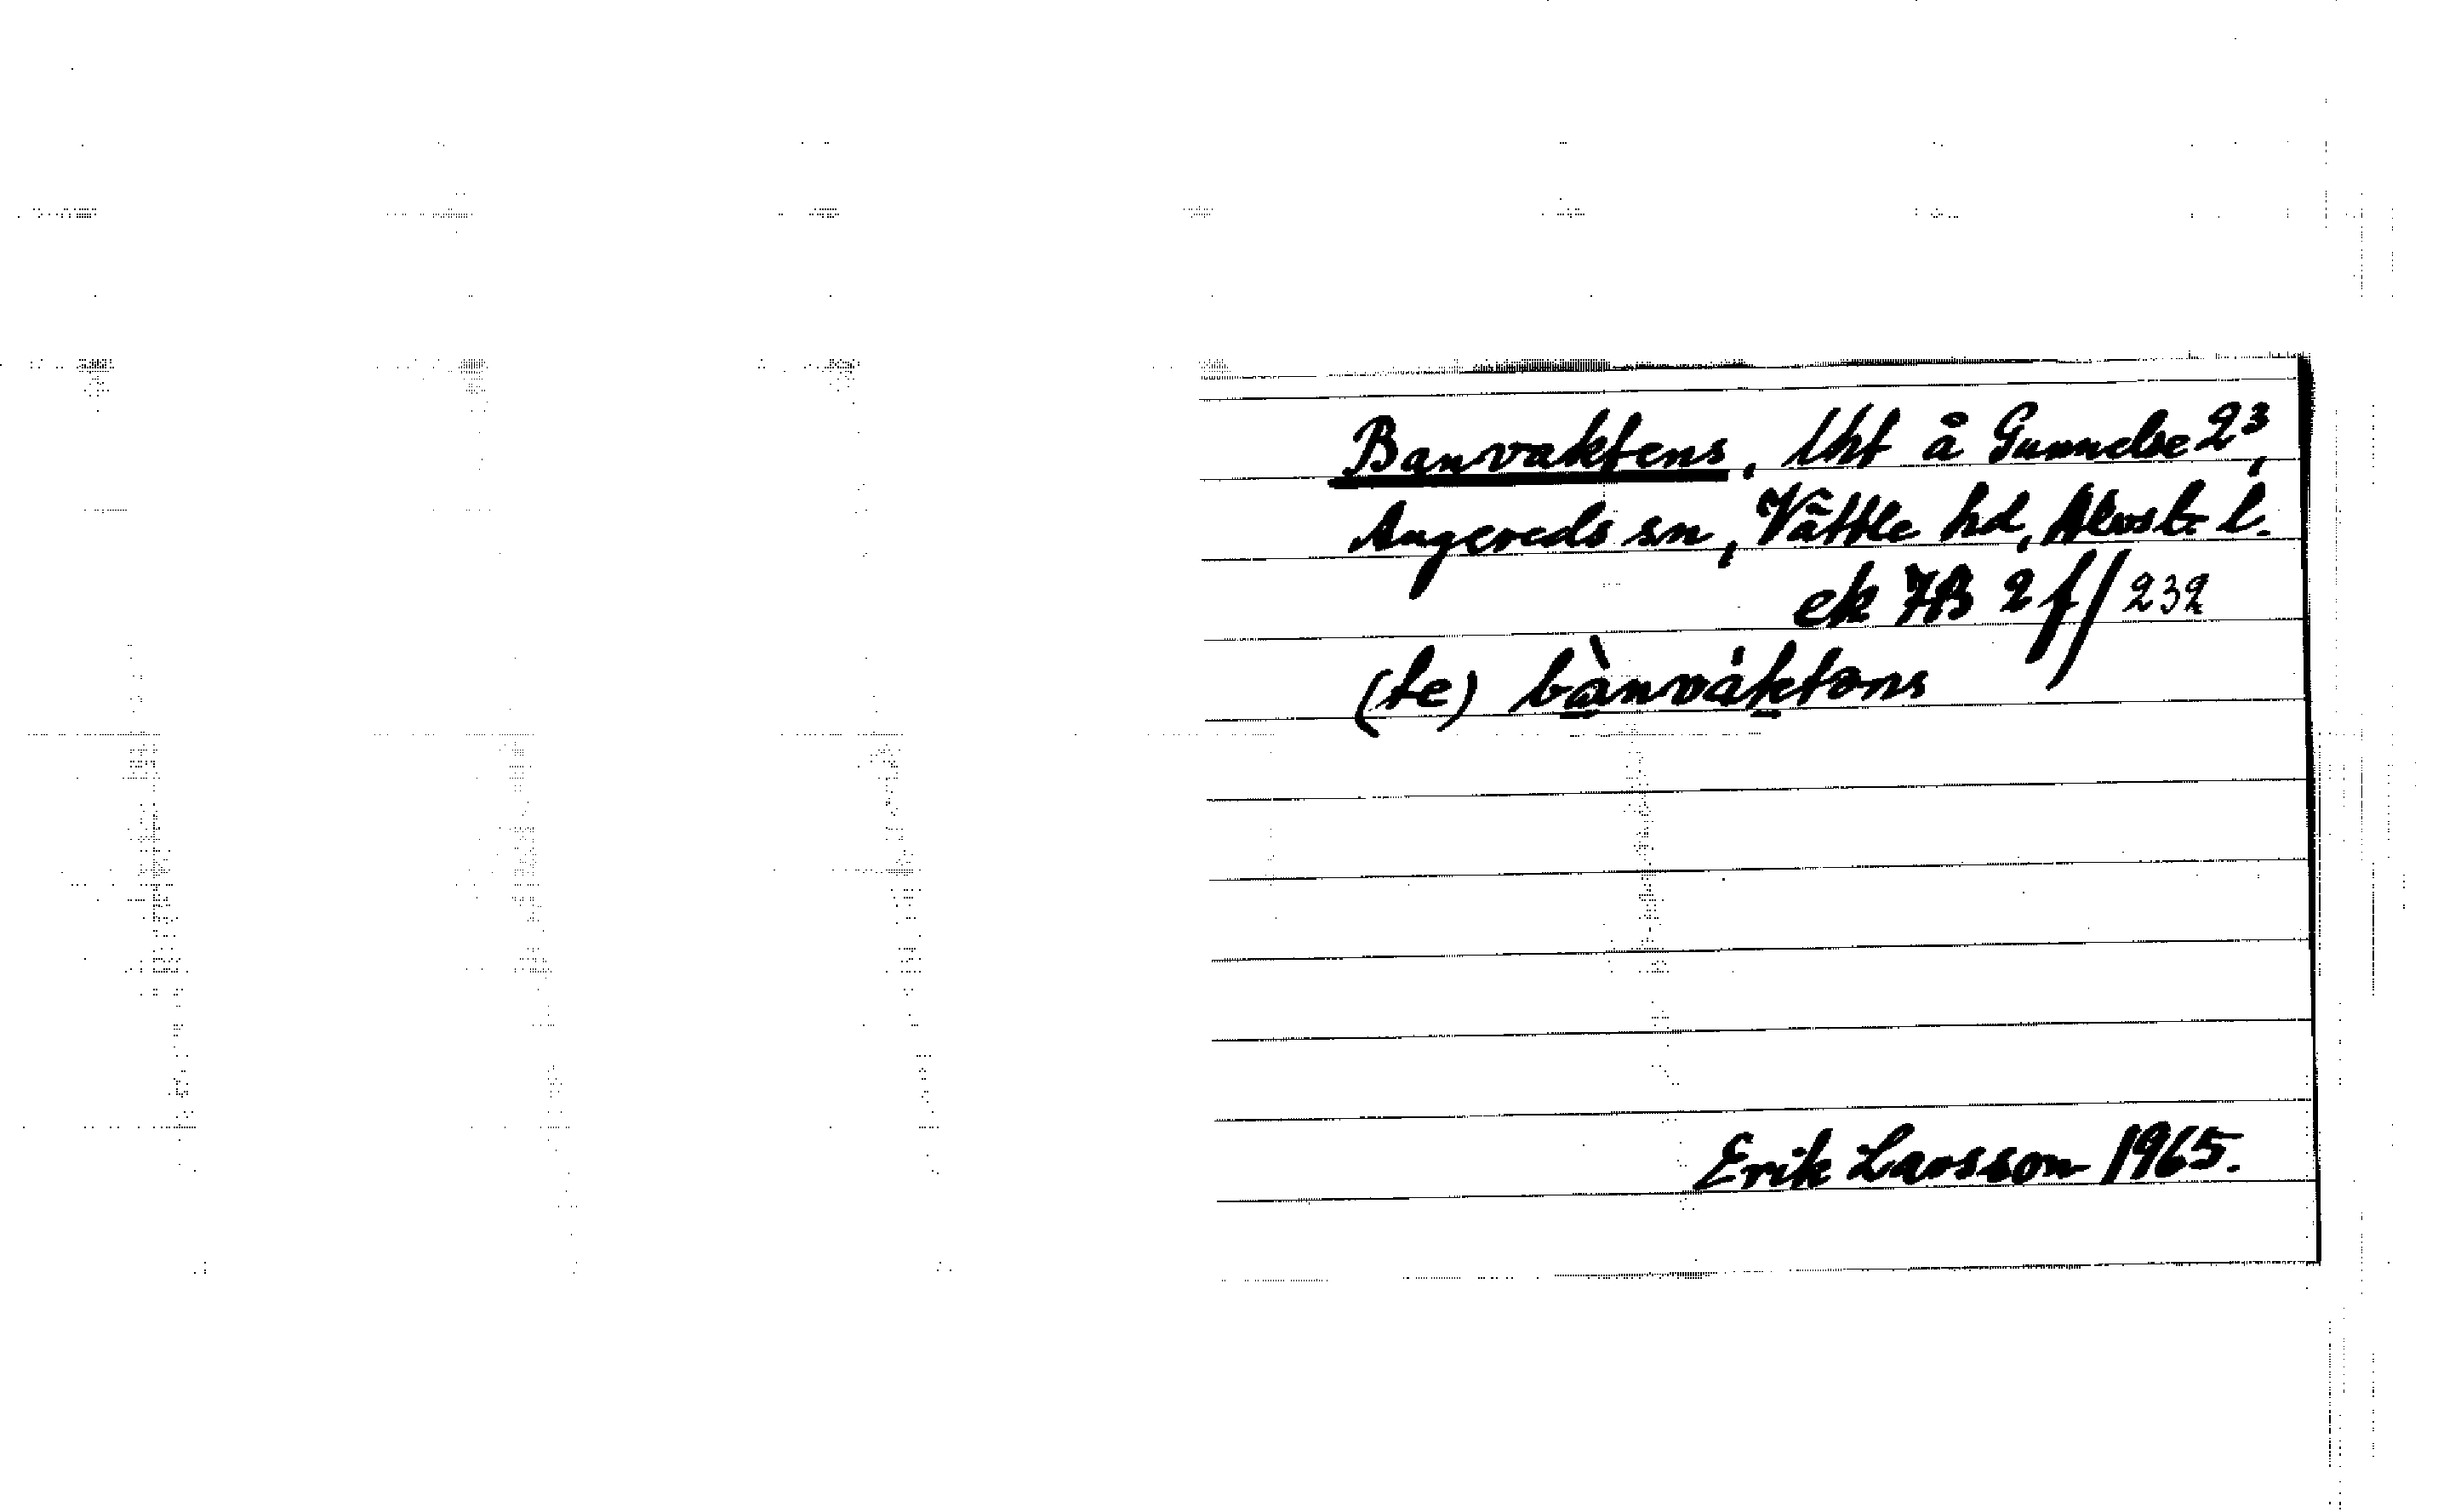 Banvaktens, lht å Gunnelse 2³,
Angereds sn, Vättle hd, Älvsb. l.
ek 7B 2f/232
(te) bànvàktəns
Erik Larsson 1965.